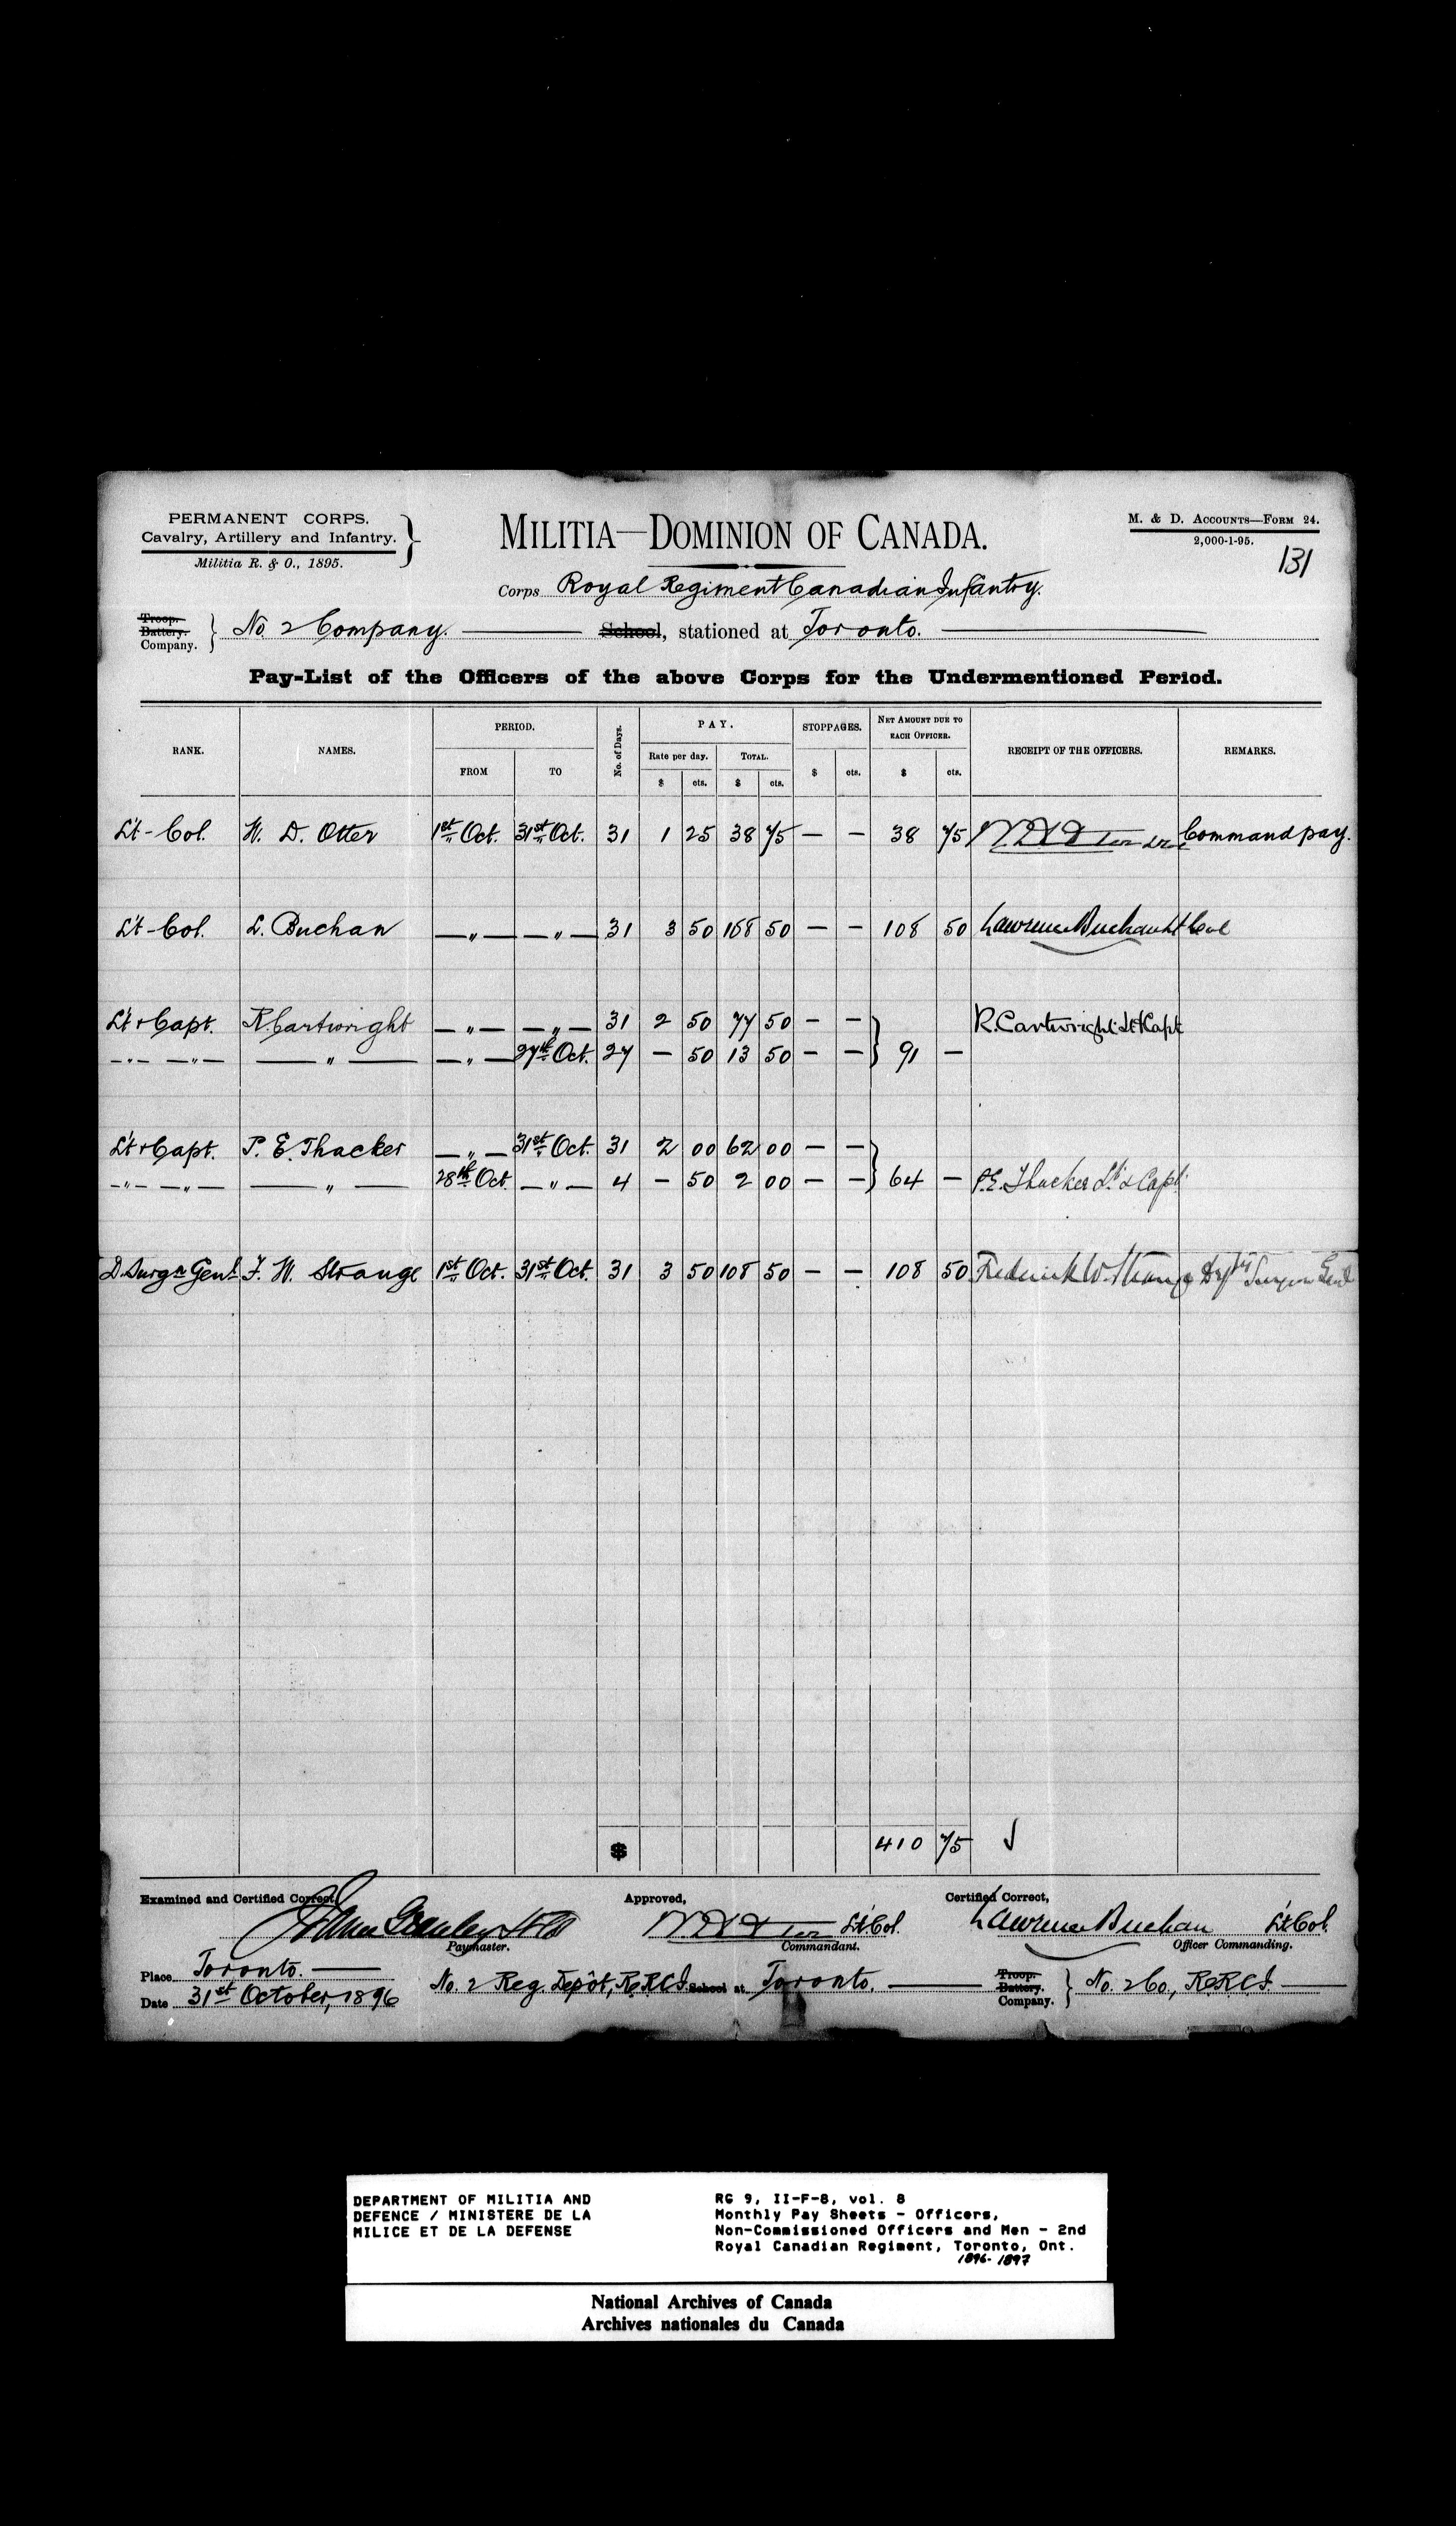 PERMANENT CORPS.
Cavalry, Artillery and Infantry.
Militia R. & O., 1895.
MILITIA—DOMINION OF CANADA.
M. & D. ACCOUNTS—FORM 24.
2,000-1-95.
131
Corps Royal Regiment Canadian Infantry.
Troop. Battery. Company. } No. 2 Company. School, stationed at Toronto.
Pay-List of the Officers of the above Corps for the Undermentioned Period.
RANK. NAMES. PERIOD. FROM TO No. of Days. PAY. Rate per day. $ cts. TOTAL. $ cts. STOPPAGES. $ cts. NET AMOUNT DUE TO EACH OFFICER. $ cts. RECEIPT OF THE OFFICERS. REMARKS.
Lt-Col. W. D. Otter 1st Oct. 31st Oct. 31 1 25 38 75 — — 38 75 W D Otter Command pay.
Lt-Col. L. Buchan —„— —„— 31 3 50 108 50 — — 108 50 Lawrence Buchan Lt Col
Lt & Capt. R. Cartwright —„— —„— 31 2 50 77 50 — — R. Cartwright Lt & Capt
—„— —„— —„— —„— 27th Oct. 27 — 50 13 50 — — } 91 —
Lt & Capt. P. E. Thacker —„— 31st Oct. 31 2 00 62 00 — —
—„— —„— —„— 28th Oct. —„— 4 — 50 2 00 — — } 64 — P.E. Thacker Lt & Capt
D. Surgn Genl F. W. Strange 1st Oct. 31st Oct. 31 3 50 108 50 — — 108 50 Frederick W. Strange Dpty Surgeon Genl
$ 410 75 ✓
Examined and Certified Correct, Approved, Certified Correct,
W D Otter Lt Col. Lawrence Buchan Lt Col.
Paymaster. Commandant. Officer Commanding.
Place Toronto.
No. 2 Reg. Depôt, R.R.C.I. School at Toronto. Troop. Battery. Company. } No. 2 Co., R.R.C.I.
Date 31st October, 1896
DEPARTMENT OF MILITIA AND
DEFENCE / MINISTERE DE LA
MILICE ET DE LA DEFENSE
RG 9, II-F-8, vol. 8
Monthly Pay Sheets - Officers,
Non-Commissioned Officers and Men - 2nd
Royal Canadian Regiment, Toronto, Ont.
1896-1897
National Archives of Canada
Archives nationales du Canada